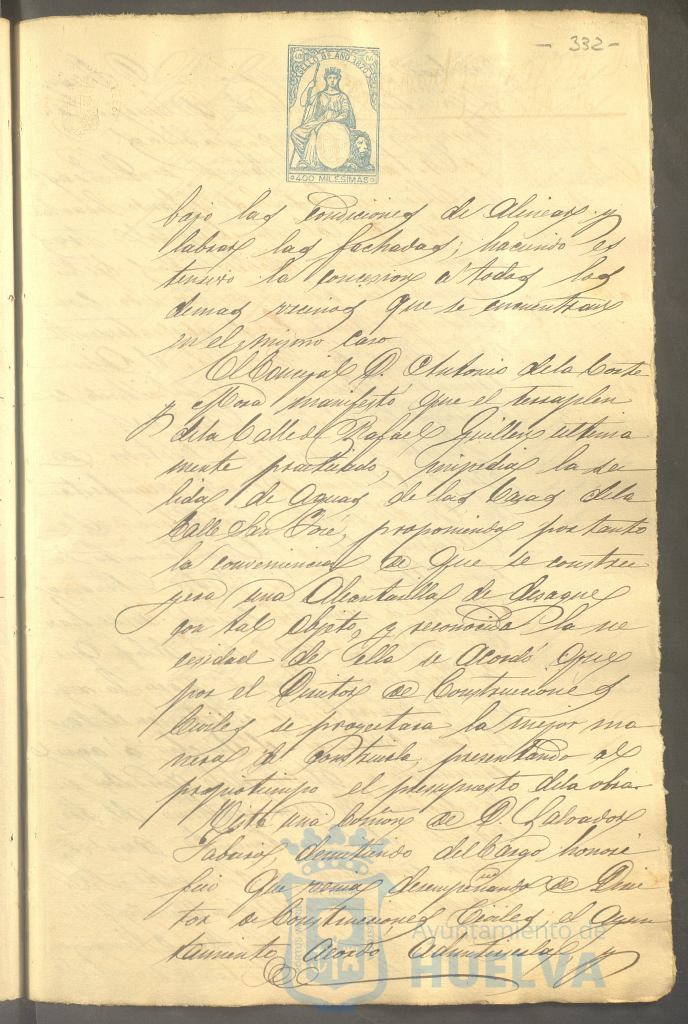 - 332 -
SELLO 8º AÑO 1870
400 MILESIMAS
bajo las condiciones de alinear y
labrar las fachadas; haciendo es
tensivo la concesion á todos los
demas vecinos que se encuentran
en el mismo caso
El Concejal D. Antonio de la Corte
y Mora manifestó que el terraplen
de la Calle de Rafael Guillen ultima
mente practicado, impedia la sa
lida de aguas de las Casas de la
Calle San José, proponiendo por tanto
la conveniencia de que se constru
yera una Alcantarilla de desague
con tal objeto, y reconocida la ne
cesidad de ella se acordó que
por el Director de Construcciones
Civiles se proyectara la mejor ma
nera de construirla, presentando al
propio tiempo el presupuesto de la obra
Vista una comon. de D. Salvador
demitiendo del Cargo honori
fico que venia desempeñando de Direc
tor de Construcciones Civiles el Ayun
tamiento acordó admitirsela y
Ayuntamiento de
HUELVA